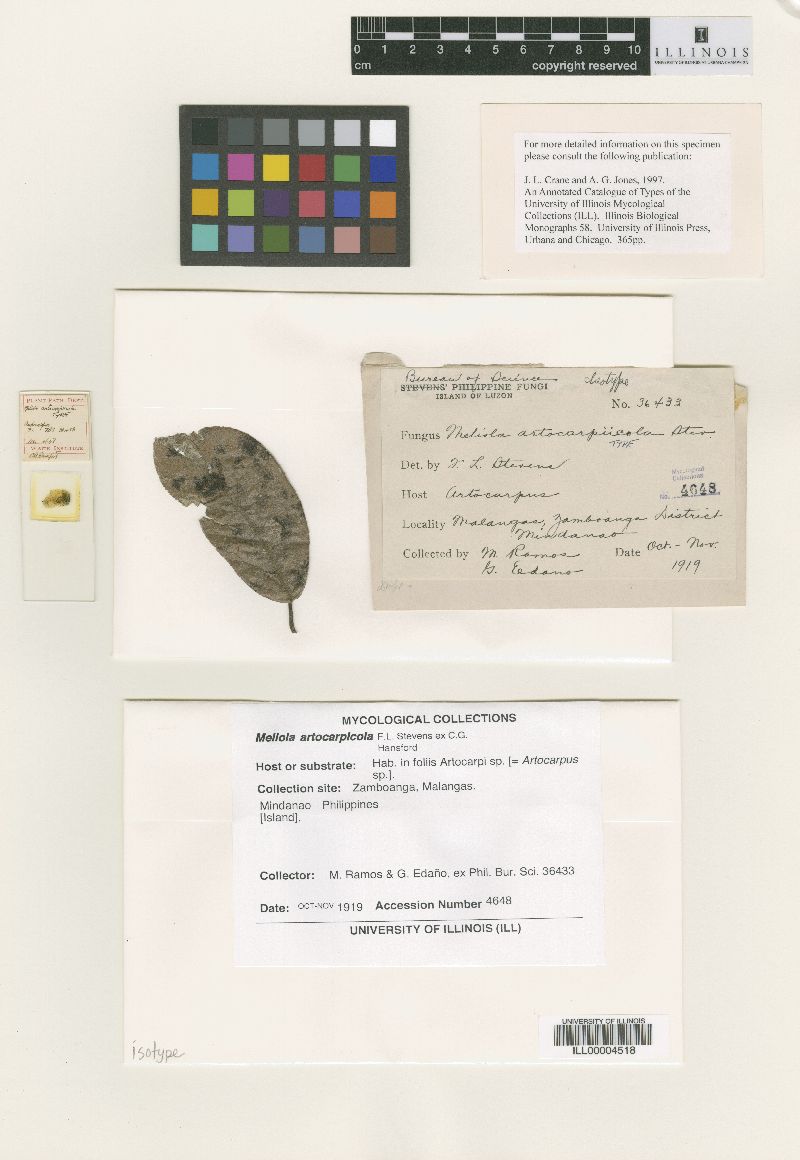 0 1 2 3 4 5 6 7 8 9 10
cm
copyright reserved
ILLINOIS
UNIVERSITY OF ILLINOIS AT URBANA-CHAMPAIGN
For more detailed information on this specimen
please consult the following publication:
J. L. Crane and A. G. Jones, 1997.
An Annotated Catalogue of Types of the
University of Illinois Mycological
Collections (ILL). Illinois Biological
Monographs 58. University of Illinois Press,
Urbana and Chicago. 365pp.
PLANT PATH. DEPT.
Bureau of Science
Isotype
STEVENS' PHILIPPINE FUNGI
ISLAND OF LUZON
No. 36433
Fungus Meliola artocarpiicola Stev.
TYPE
Det. by F. L. Stevens
Mycological
Collections
No. 4648
Host Artocarpus
Locality Malangas, Zamboanga District
Mindanao
Collected by M. Ramos
G. Eedano
Date Oct.-Nov.
1919
MYCOLOGICAL COLLECTIONS
Meliola artocarpicola F.L. Stevens ex C.G.
Hansford
Host or substrate: Hab. in foliis Artocarpi sp. [= Artocarpus
sp.].
Collection site: Zamboanga, Malangas.
Mindanao Philippines
[Island].
Collector: M. Ramos & G. Edaño, ex Phil. Bur. Sci. 36433
Date: OCT-NOV 1919 Accession Number 4648
UNIVERSITY OF ILLINOIS (ILL)
isotype
UNIVERSITY OF ILLINOIS
ILL00004518